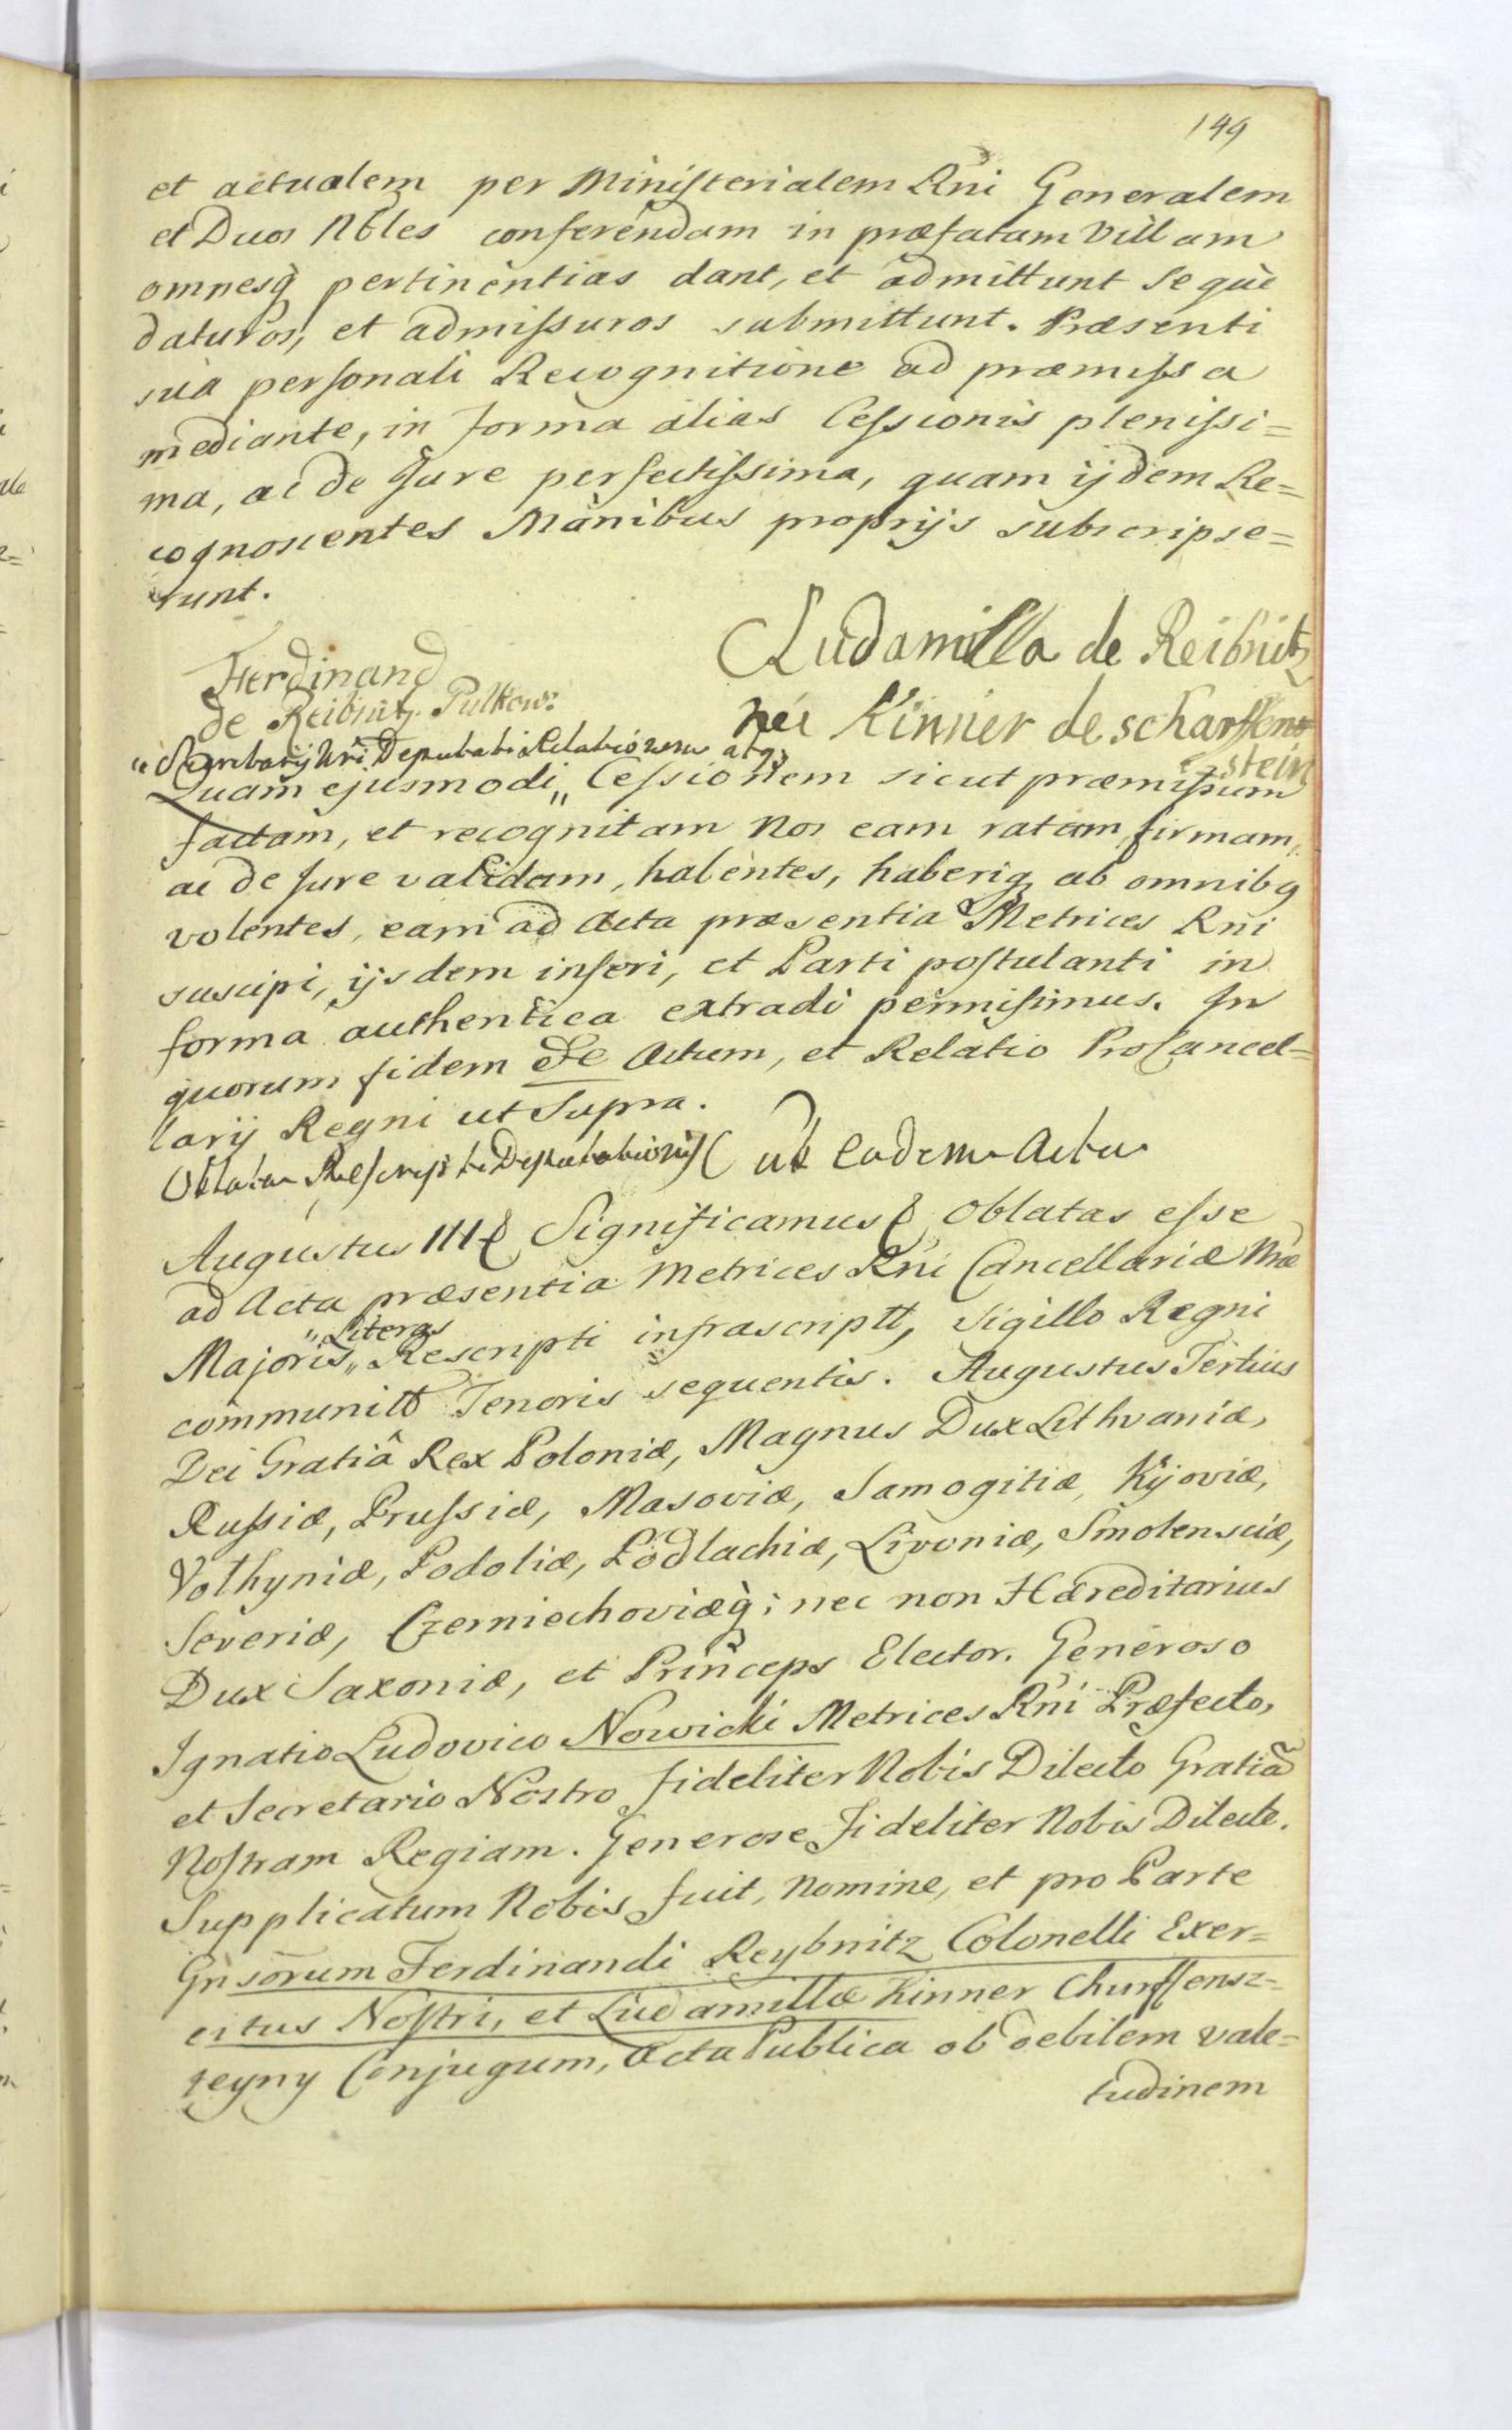 149
et actualem per Ministerialem Rni Generalem
et Duos Nbles conferendam in præfatam Villam
omnesq pertinentias dant, et admittunt se que
daturos, et admissuros submittunt. Præsenti
sua personali Recognitione ad præmissa
mediante, in forma alias Cessionis plenissi=
ma, ac de Jure perfectissima, quam ijdem Re=
cognoscentes Manibus proprijs subscripse=
runt.
Ferdinand
de Reibnitz Pulkow:
Ludamilla de Reibnitz
née Kinner de scharffen
stein
" Secretarij Nri Deputati Relationem atq
Quam ejusmodi " Cessionem sicut præmissum
factam, et recognitam Nos eam ratam, firmam,
ac de Jure validam, habentes, haberiq ab omnibq
volentes, eam ad Acta præsentia Metrices Rni
suscipi, ijsdem inseri, et Parti postulanti in
forma authentica extradi permisimus. In
quorum fidem etc Actum, et Relatio ProCancel=
larij Regni ut Supra.
Oblata Rescripti Deputationis ut Eadem Acta
Augustus III Significamus Oblatas esse
ad Acta præsentia Metrices Rni Cancellariæ Nræ
" Literas
Majoris " Rescripti infrascriptt, Sigillo Regni
communitt Tenoris sequentis. Augustus Tertius
Dei Gratiâ Rex Poloniæ, Magnus Dux Lithvaniæ,
Russiæ, Prussiæ, Masoviæ, Samogitiæ, Kijoviæ,
Volhyniæ, Podoliæ, Podlachiæ, Livoniæ, Smolensciæ,
Severiæ, Czerniechoviæq; nec non Hæreditarius
Dux Saxoniæ, et Princeps Elector. Generoso
Ignatio Ludovico Nowicki Metrices Rni Præfecto,
et Secretario Nostro fideliter Nobis Dilecto Gratiã
Nostram Regiam. Generose Fideliter Nobis Dilecte.
Supplicatum Nobis fuit, nomine, et pro Parte
Gnsorum Ferdinandi Reybnitz Colonelli Exer=
citus Nostri, et Ludamillæ Kinner Churffensz=
teyny Conjugum, Acta Publica ob debilem vale=
tudinem